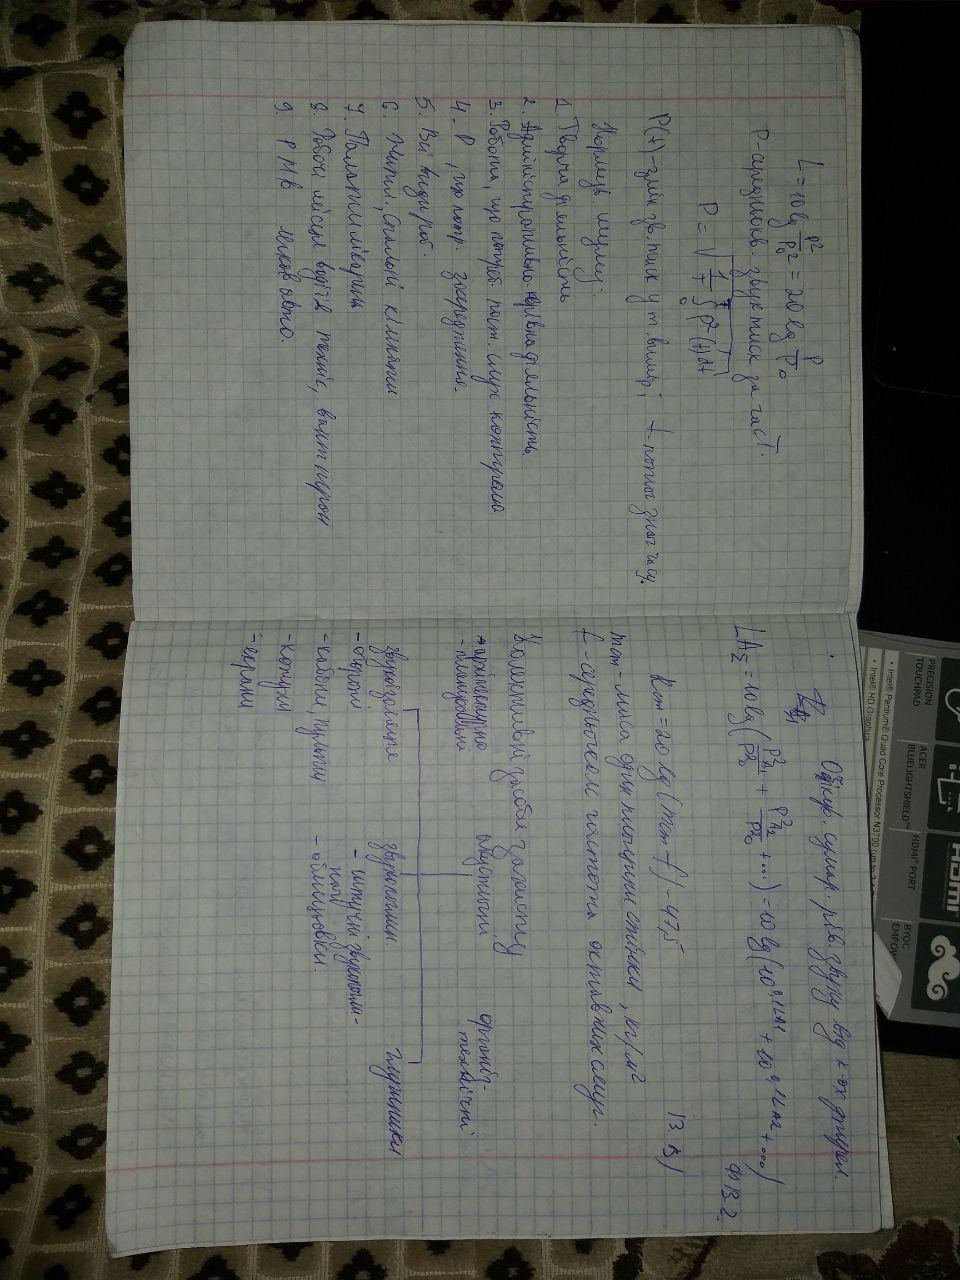 PRECISION
TOUCHPAD
ACER
BLUELIGHTSHIELD™
HDMI
HDMI® PORT
BYOC
• Intel® Pentium® Quad Core Processor N3700
• Intel® HD Graphics
L = 10 lg P²/P₀² = 20 lg P/P₀
P - середньокв. звук тиск за час T.
P = √(1/T ∫₀ᵀ P²(t) dt)
P(t) - змін зв. тиск у т. вимір; t - поточ знач часу.
Нормув. шуму:
1. Творча діяльність
2. Адміністративно-керівна діяльність
3. Робота, що потреб. пост. слух контролю
4. Р , що потр. зосередження.
5. Всі види роб.
6. Житл., спальні кімнати
7. Палати лікарень
8. Робочі місця водіїв технік, вантп
9. Р М В легков авто.
Очікув. сумар. рів. звуку від к-ох джерел.
LA_Σ = 10 lg (P²_A1/P²₀ + P²_A2/P²₀ + ...) = 10 lg (10^0,1LA1 + 10^0,1LA2 + ...)
Rст = 20 lg (mст - f) - 47,5
mст - маса один площини стінки , кг/м²
f - середньогеом частота октавних смуг.
Колективні засоби захисту
- архітектурно
- планувальні
акустичні
організ-
технічні
звукоізоляція
- огорожі
- кабіни, пульти
- кожухи
- екрани
звукопоглин.
- штучні звукопогли-
начі
- облицьовки.
глушники